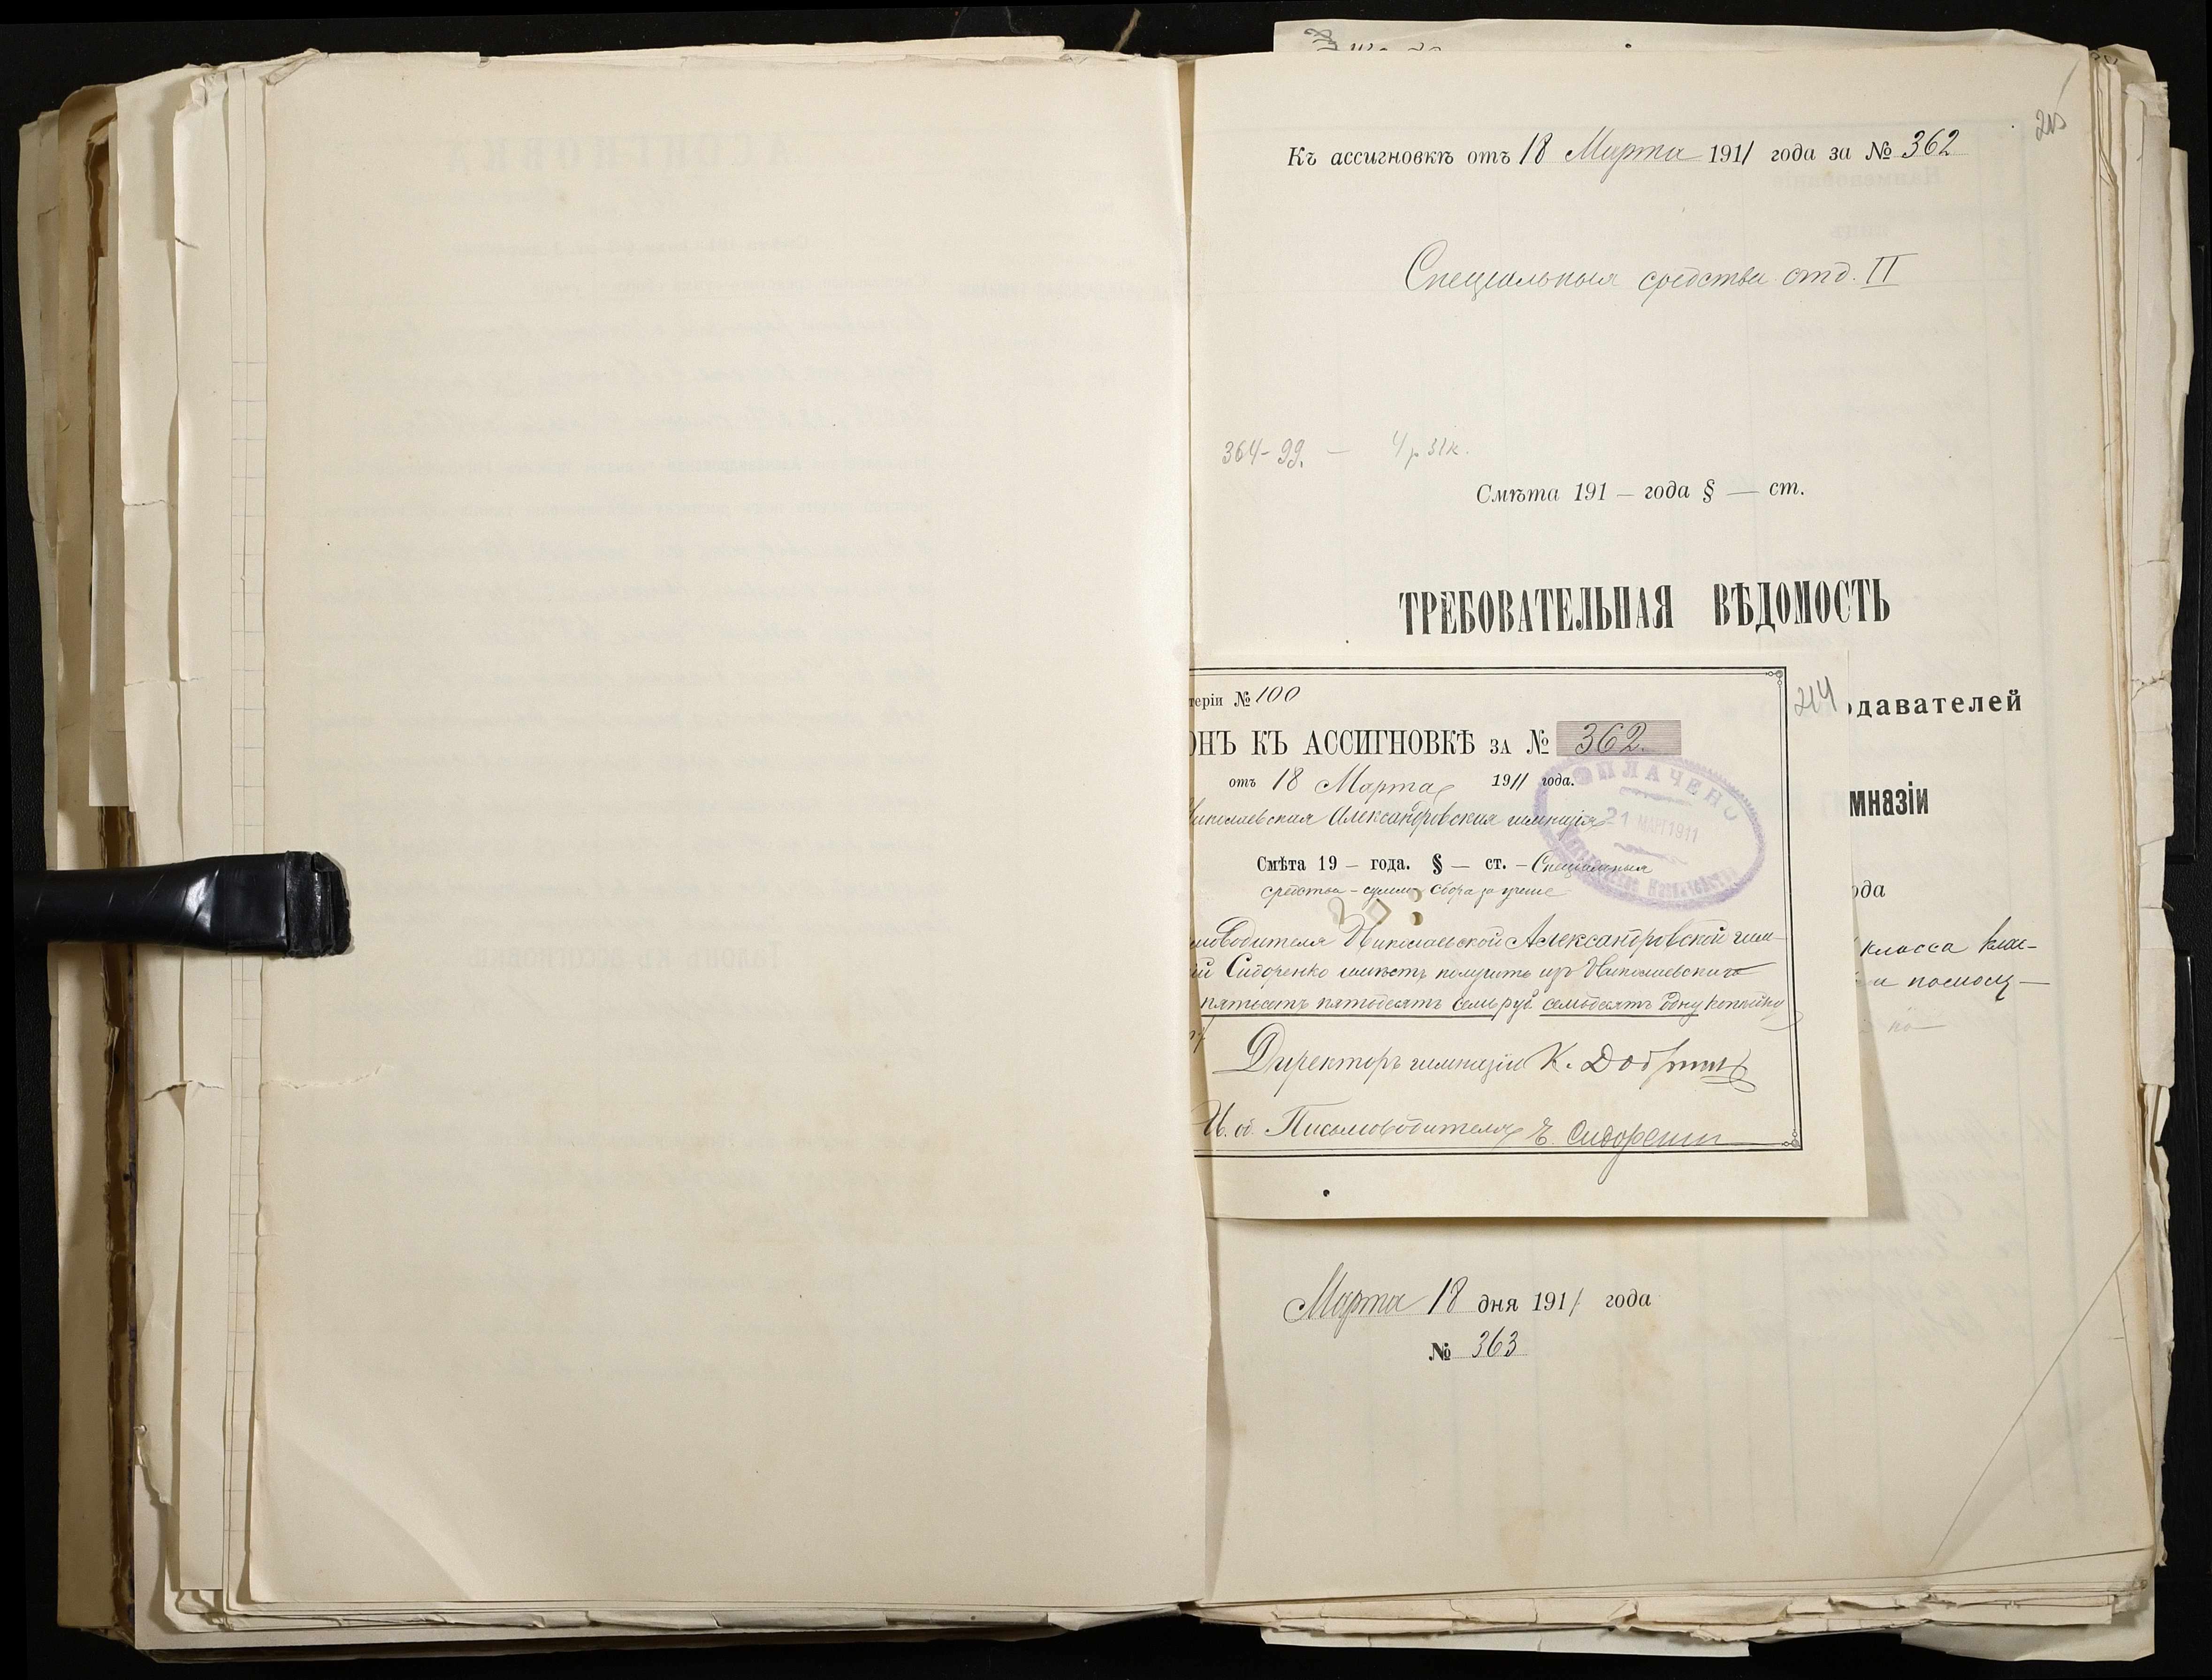 215
Къ ассигновкѣ отъ 18 Марта 1911 года за № 362
Спеціальныя средства отд. II
364-99. — 4 р 31к.
Смѣта 191 — года § — ст.
ТРЕБОВАТЕЛЬНАЯ ВѢДОМОСТЬ
214
одавателей
мназіи
ода
класса
и
теріи № 100
ОНЪ КЪ АССИГНОВКѢ ЗА № 362.
отъ 18 Марта 1911 года.
Николаевская Александровская гимназія
ОПЛАЧЕНО
21 МАР 1911
Смѣта 19 — года. § — ст. — Спеціальныя
средства – суммы сбора за ученіе
моводителя Николаевской Александровской гим-
ій Сидоренко имѣетъ получить изъ Николаевскаго
пятьсотъ пятьдесятъ семь руб. семьдесятъ одну копѣйку
Директоръ гимназіи К.
И. об. Письмоводителя Е. Сидоренко
Марта 18 дня 1911 года
№ 363